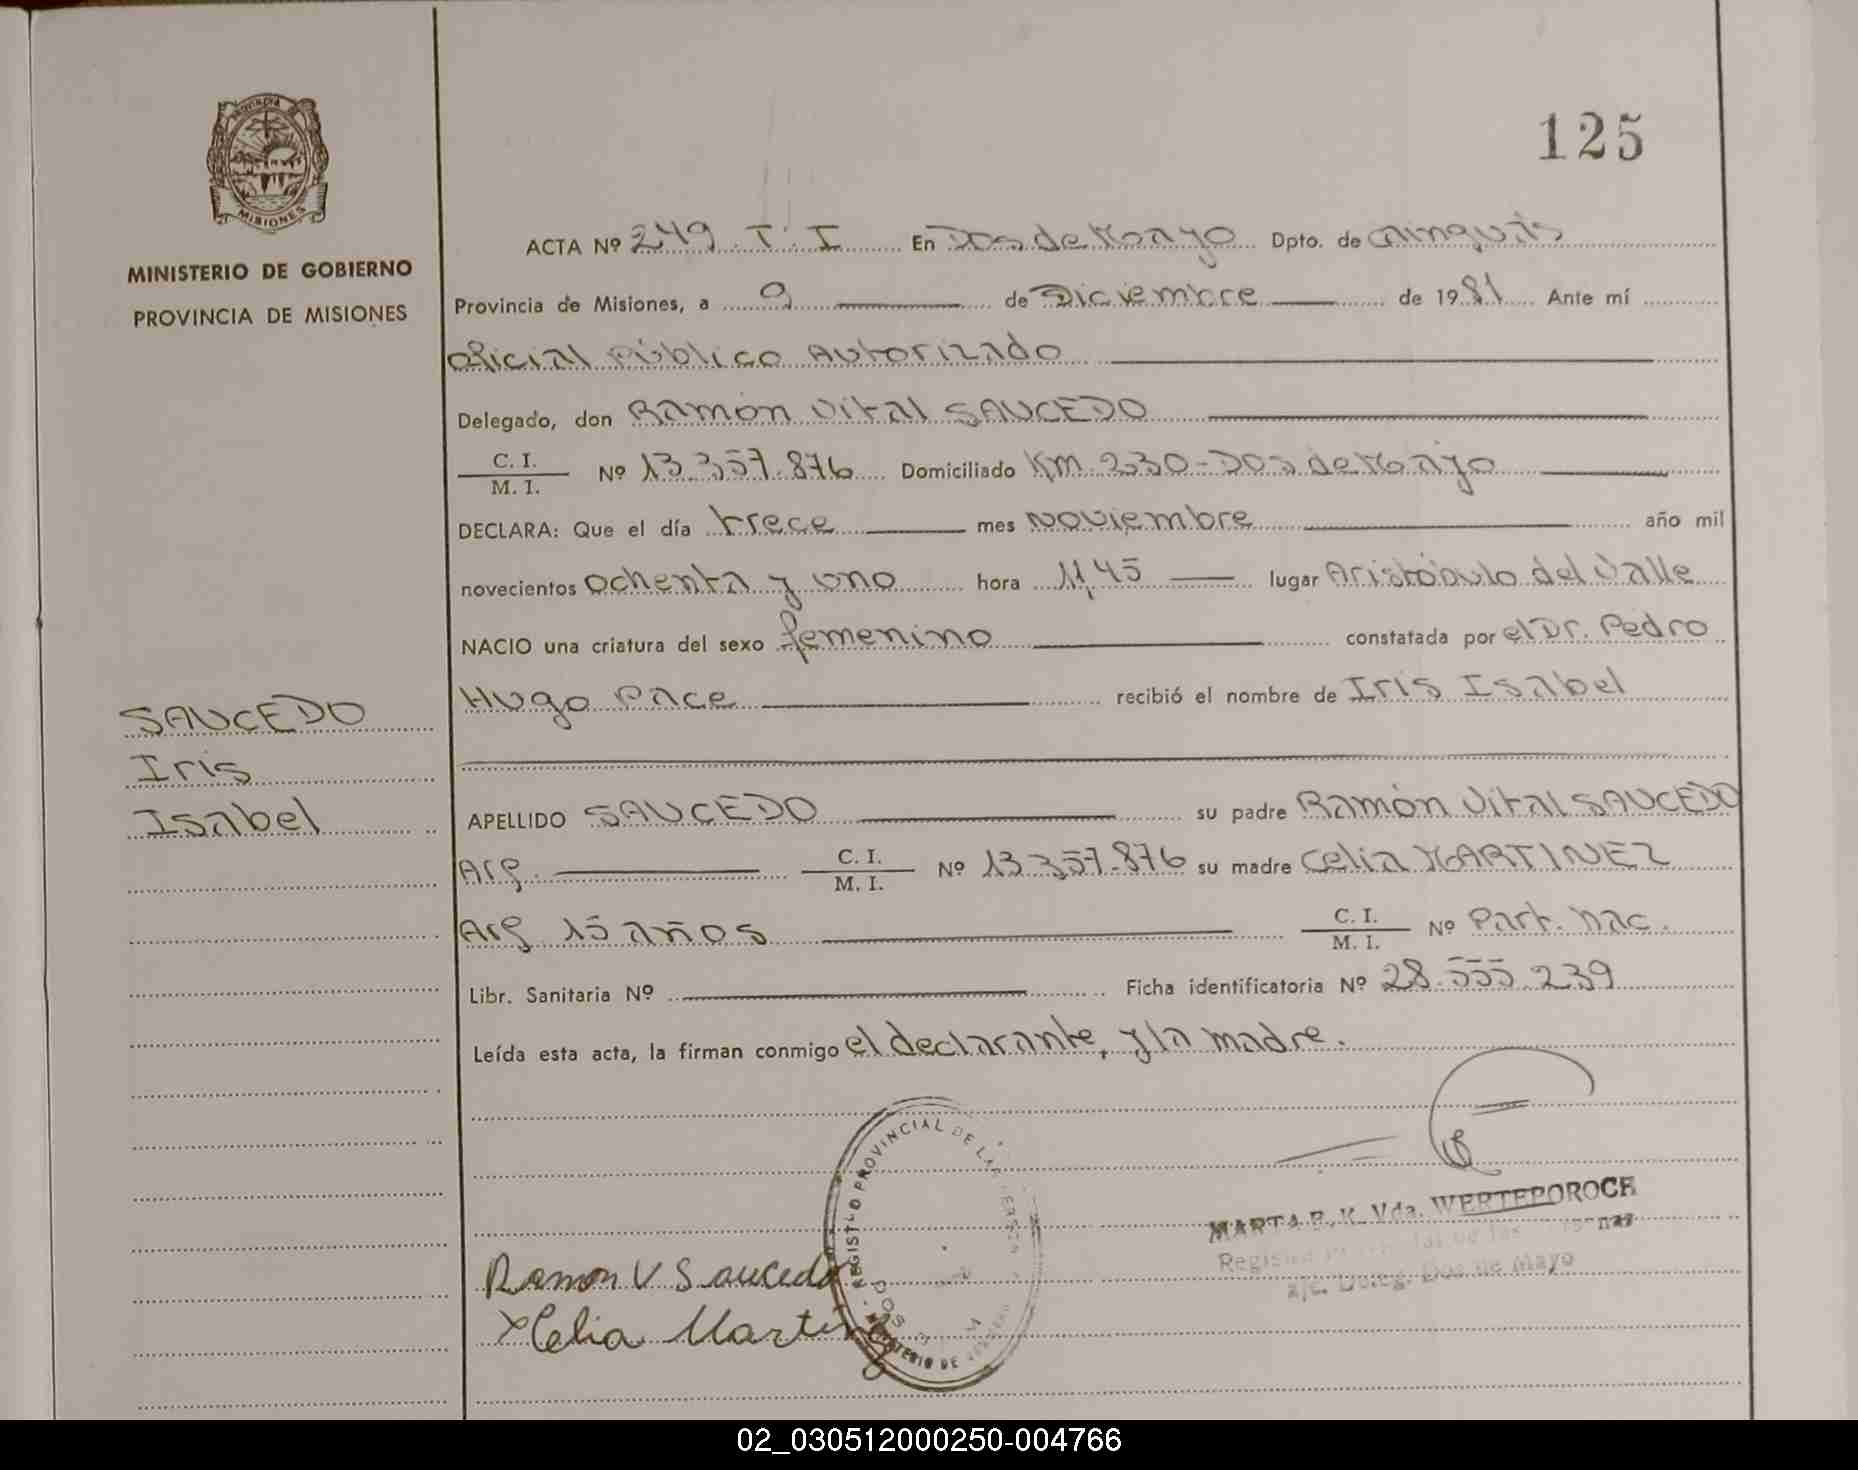 125
MINISTERIO DE GOBIERNO
PROVINCIA DE MISIONES
ACTA Nº 249 T. I En Dos de Mayo Dpto. de Cainguás
Provincia de Misiones, a 9 de Diciembre de 1981 Ante mí
Oficial Público Autorizado
Delegado, don Ramón Vital SAUCEDO
C. I. / M. I. Nº 13.357.876 Domiciliado Km. 230 - Dos de Mayo
DECLARA: Que el día trece mes Noviembre año mil
novecientos ochenta y uno hora 11,45 lugar Aristóbulo del Valle
NACIO una criatura del sexo femenino constatada por el Dr. Pedro
Hugo Pace recibió el nombre de Iris Isabel
SAUCEDO
Iris
Isabel
APELLIDO SAUCEDO su padre Ramón Vital SAUCEDO
Arg. C. I. / M. I. Nº 13.357.876 su madre Celia MARTINEZ
Arg 15 años C. I. / M. I. Nº Part. Nac.
Libr. Sanitaria Nº Ficha identificatoria Nº 28.555.239
Leída esta acta, la firman conmigo el declarante, y la madre.
REGISTRO PROVINCIAL DE LAS
MARTA E. K. Vda. WERTEPOROCH
a/c. Deleg. Dos de Mayo
Ramon V Saucedo
x Celia Martínez
02_030512000250-004766